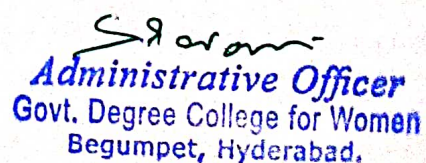 Administrative Officer
Govt. Degree College for Women
Begumpet, Hyderabad.